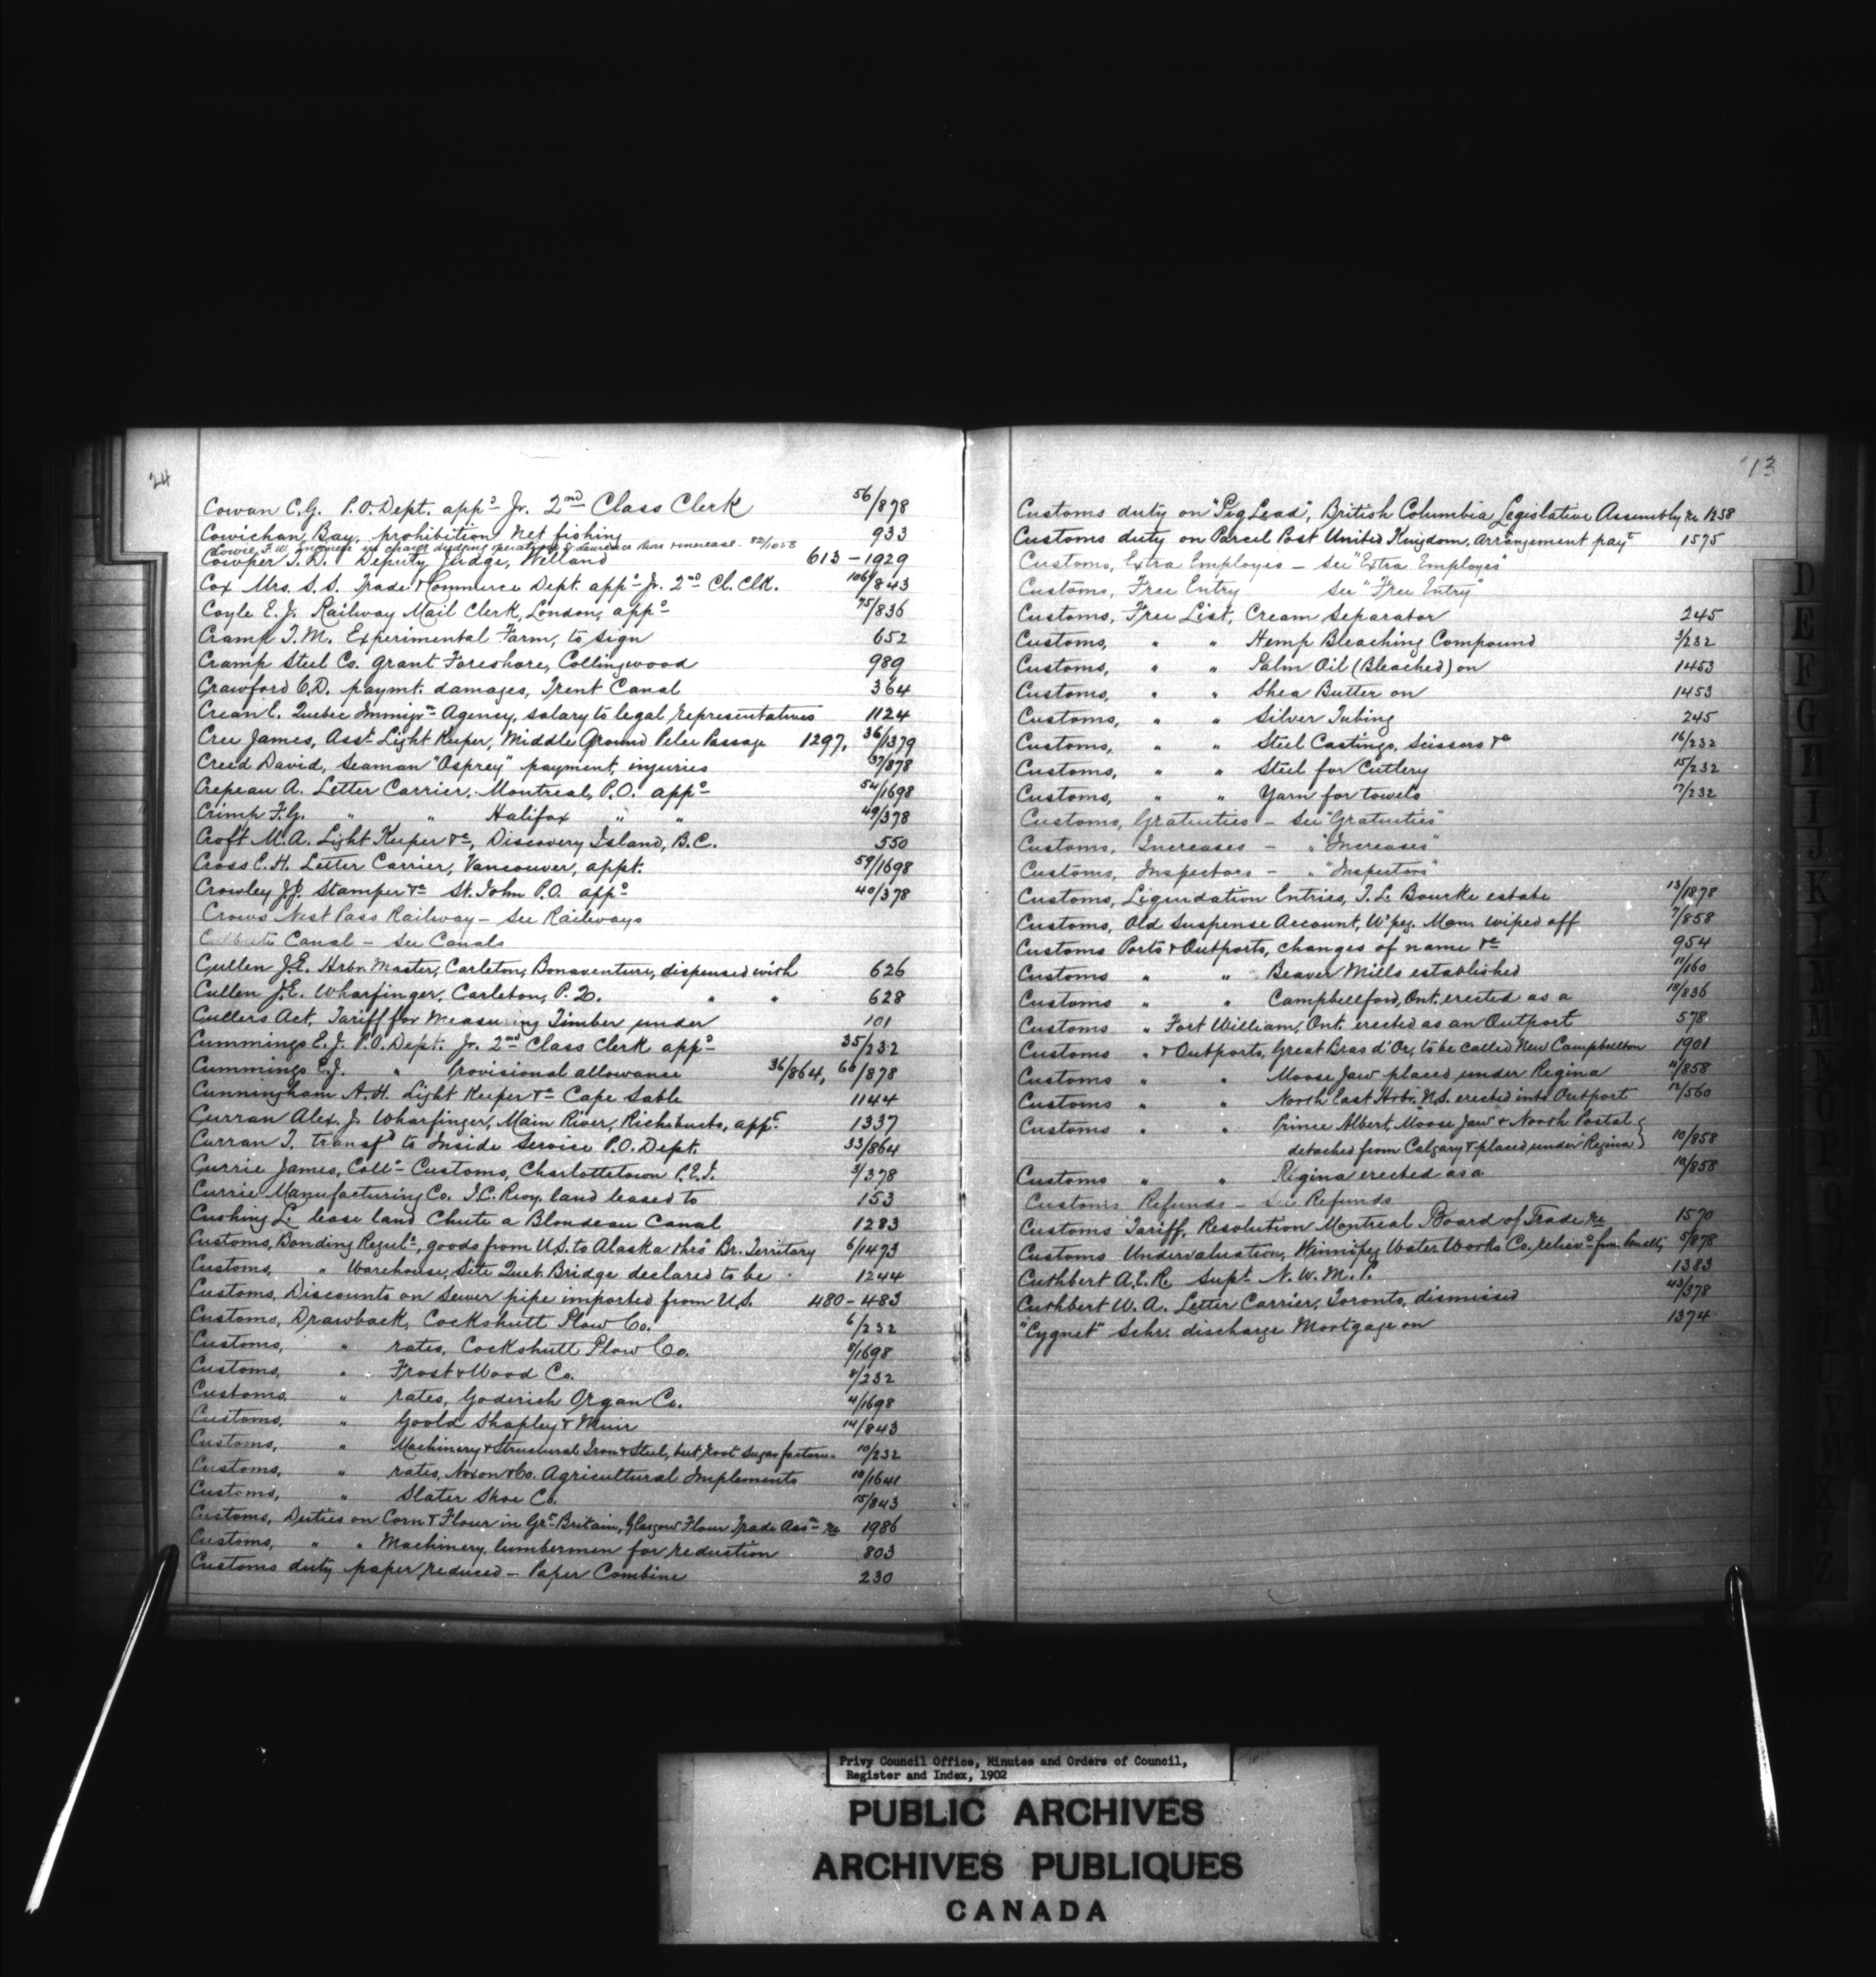 24
Cowan C.G. P.O. Dept. appt Jr. 2nd Class Clerk 56/878
Cowichan Bay, prohibition Net fishing 933
Cowie F.W. in charge dredging operations St Lawrence increase 82/1058
Cowper T.D. Deputy Judge, Welland 613-1929
Cox Mrs. S.S. Trade & Commerce Dept. appt Jr. 2nd Cl. Clk. 106/843
Coyle E.J. Railway Mail Clerk, London, appt 75/836
Cramp T.M. Experimental Farm, to sign 652
Cramp Steel Co. grant Foreshore, Collingwood 989
Crawford C.D. paymt. damages, Trent Canal 364
Crean E. Quebec Immigrn Agency, salary to legal representatives 1124
Cree James, Asst Light Keeper, Middle Ground Pelee Passage 1297, 36/1379
Creed David, Seaman "Osprey" payment, injuries 37/878
Crepeau A. Letter Carrier, Montreal, P.O. appt 54/1698
Crimp F.G. " " Halifax " " 49/378
Croft M.A. Light Keeper &c, Discovery Island, B.C. 550
Cross E.H. Letter Carrier, Vancouver, appt. 59/1698
Crowley J.J. Stamper &c St. John P.O. appt 40/378
Crows Nest Pass Railway - See Railways
Culbute Canal - See Canals
Cullen J.E. Hrbr Master, Carleton, Bonaventure, dispensed with 626
Cullen J.E. Wharfinger, Carleton, P.Q. " " 628
Cullers Act, Tariff for Measuring Timber under 101
Cummings E.J. P.O. Dept. Jr. 2nd Class Clerk appt 35/232
Cummings E.J. " Provisional allowance 36/864, 66/878
Cunningham A.H. Light Keeper &c Cape Sable 1144
Curran Alex. J. Wharfinger, Main River, Richibucto, appt. 1337
Curran T. transfd to Inside Service P.O. Dept. 33/864
Currie James, Collr Customs, Charlottetown P.E.I. 3/378
Currie Manufacturing Co. I.C. Rwy. land leased to 153
Cushing L. lease land Chute a Blondeau Canal 1283
Customs, Bonding Reguls, goods from U.S. to Alaska thro' Br. Territory 6/1473
Customs, " Warehouse, Site Queb. Bridge declared to be 1244
Customs, Discounts on Sewer pipe imported from U.S. 480-483
Customs, Drawback, Cockshutt Plow Co. 6/232
Customs, " rates, Cockshutt Plow Co. 8/1698
Customs, " Frost & Wood Co. 8/232
Customs, " rates, Goderich Organ Co. 4/1698
Customs, " Goold Shapley & Muir 14/843
Customs, " Machinery & Structural Iron & Steel, beet root Sugar factories 10/232
Customs, " rates, Noxon & Co. Agricultural Implements 10/1641
Customs, " Slater Shoe Co. 15/843
Customs, Duties on Corn & Flour in Gr. Britain, Glasgow Flour Trade Assn re 1986
Customs, " " Machinery, lumbermen for reduction 803
Customs duty paper reduced - Paper Combine 230
13
Customs duty on "Pig Lead", British Columbia Legislative Assembly re 1238
Customs duty on Parcel Post United Kingdom, Arrangement payt 1575
Customs, Extra Employes - See "Extra Employes"
Customs, Free Entry See "Free Entry"
Customs, Free List, Cream Separator 245
Customs, " " Hemp Bleaching Compound 3/232
Customs, " " Palm Oil (Bleached) on 1453
Customs, " " Shea Butter on 1453
Customs, " " Silver Tubing 245
Customs, " " Steel Castings, Scissors &c 16/232
Customs, " " Steel for Cutlery 15/232
Customs, " " Yarn for towels 17/232
Customs, Gratuities - See "Gratuities"
Customs, Increases - " "Increases"
Customs, Inspectors - " "Inspectors"
Customs, Liquidation Entries, T.L. Bourke estate 13/1878
Customs, Old Suspense Account, W'peg. Man. wiped off 7/858
Customs Ports & Outports, changes of name &c 954
Customs " " Beaver Mills established 11/160
Customs " " Campbellford, Ont. erected as a 18/836
Customs " Fort William, Ont. erected as an Outport 578
Customs " & Outports, Great Bras d'Or, to be called New Campbellton 1901
Customs " " Moose Jaw placed under Regina 11/858
Customs " " North East Hrbr, N.S. erected into Outport 12/560
Customs " " Prince Albert, Moose Jaw & North Portal
detached from Calgary & placed under Regina 10/858
Customs " " Regina erected as a 10/858
Customs Refunds - See Refunds
Customs Tariff, Resolution Montreal Board of Trade re 1570
Customs Undervaluation, Winnipeg Water Works Co. relievd from Penalty 5/878
Cuthbert A.E.R. Supt. N.W.M.P. 1383
Cuthbert W.A. Letter Carrier, Toronto, dismissed 43/378
"Cygnet" Schr. discharge Mortgage on 1374
D
E
F
G
H
I
J
K
Privy Council Office, Minutes and Orders of Council,
Register and Index, 1902
PUBLIC ARCHIVES
ARCHIVES PUBLIQUES
CANADA